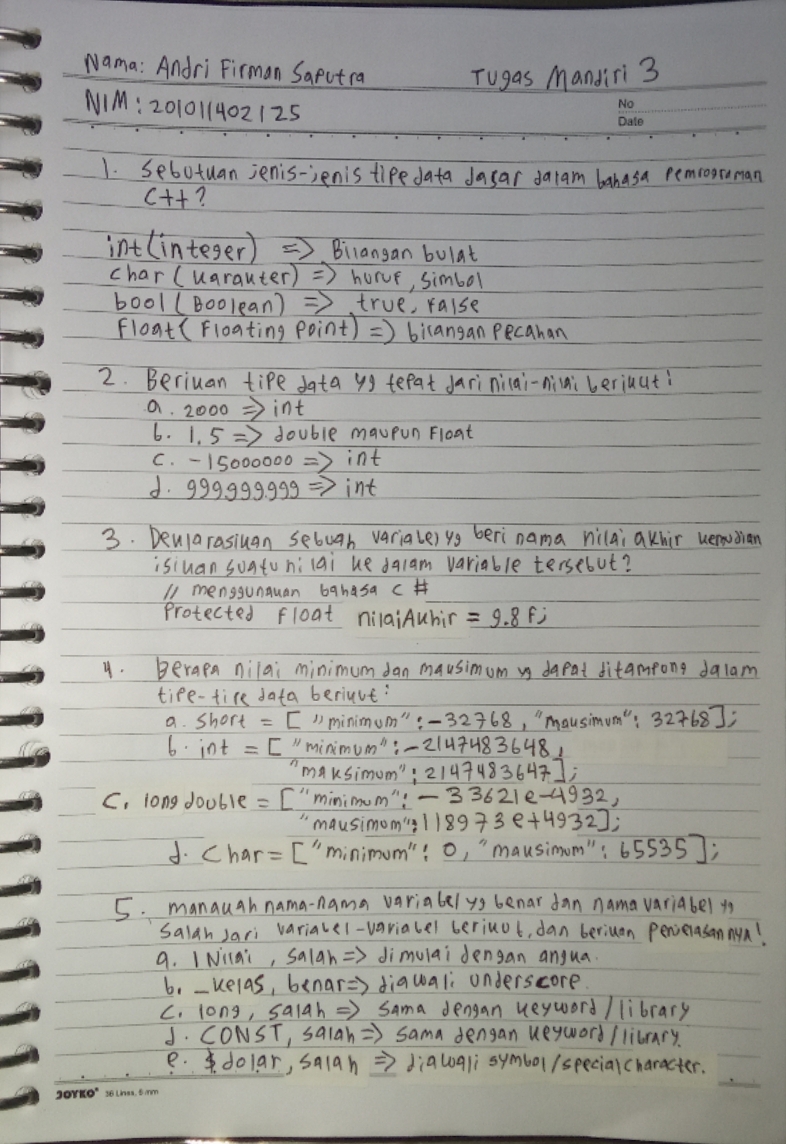 Nama: Andri Firman Saputra Tugas Mandiri 3
NIM : 201011402125
No
Date
1. Sebutuan jenis-jenis tipe data dasar dalam bahasa pemrograman
C++?
int (integer) => Bilangan bulat
char (karakter) => huruf, simbol
bool (Boolean) => true, False
float (Floating Point) => bilangan pecahan
2. Berikan tipe data yg tepat dari nilai-nilai berikut:
a. 2000 => int
b. 1,5 => double maupun Float
c. -15000000 => int
d. 999.999.999 => int
3. Deklarasikan sebuah variabel yg beri nama nilai akhir kemudian
isikan suatu nilai ke dalam variable tersebut?
// menggunakan bahasa C #
Protected Float nilaiAkhir = 9.8 F;
4. Berapa nilai minimum dan maksimum yg dapat ditampong dalam
tipe-tipe data berikut:
a. Short = ["minimum": -32768, "maksimum": 32768];
b. int = ["minimum": -2147483648,
"maksimum": 2147483647];
c. long double = ["minimum": -33621e-4932,
"maksimum": 118973e+4932];
d. Char = ["minimum": 0, "maksimum": 65535];
5. manakah nama-nama variabel yg benar dan nama variabel yg
salah dari variabel-variabel berikut, dan berikan penjelasannya!
a. 1Nilai, salah => dimulai dengan angka.
b. _kelas, benar => diawali underscore.
c. long, salah => sama dengan keyword/library
d. CONST, salah => sama dengan keyword/library.
e. $dolar, salah => diawali symbol/special character.
JOYKO 36 Lines, 6 mm